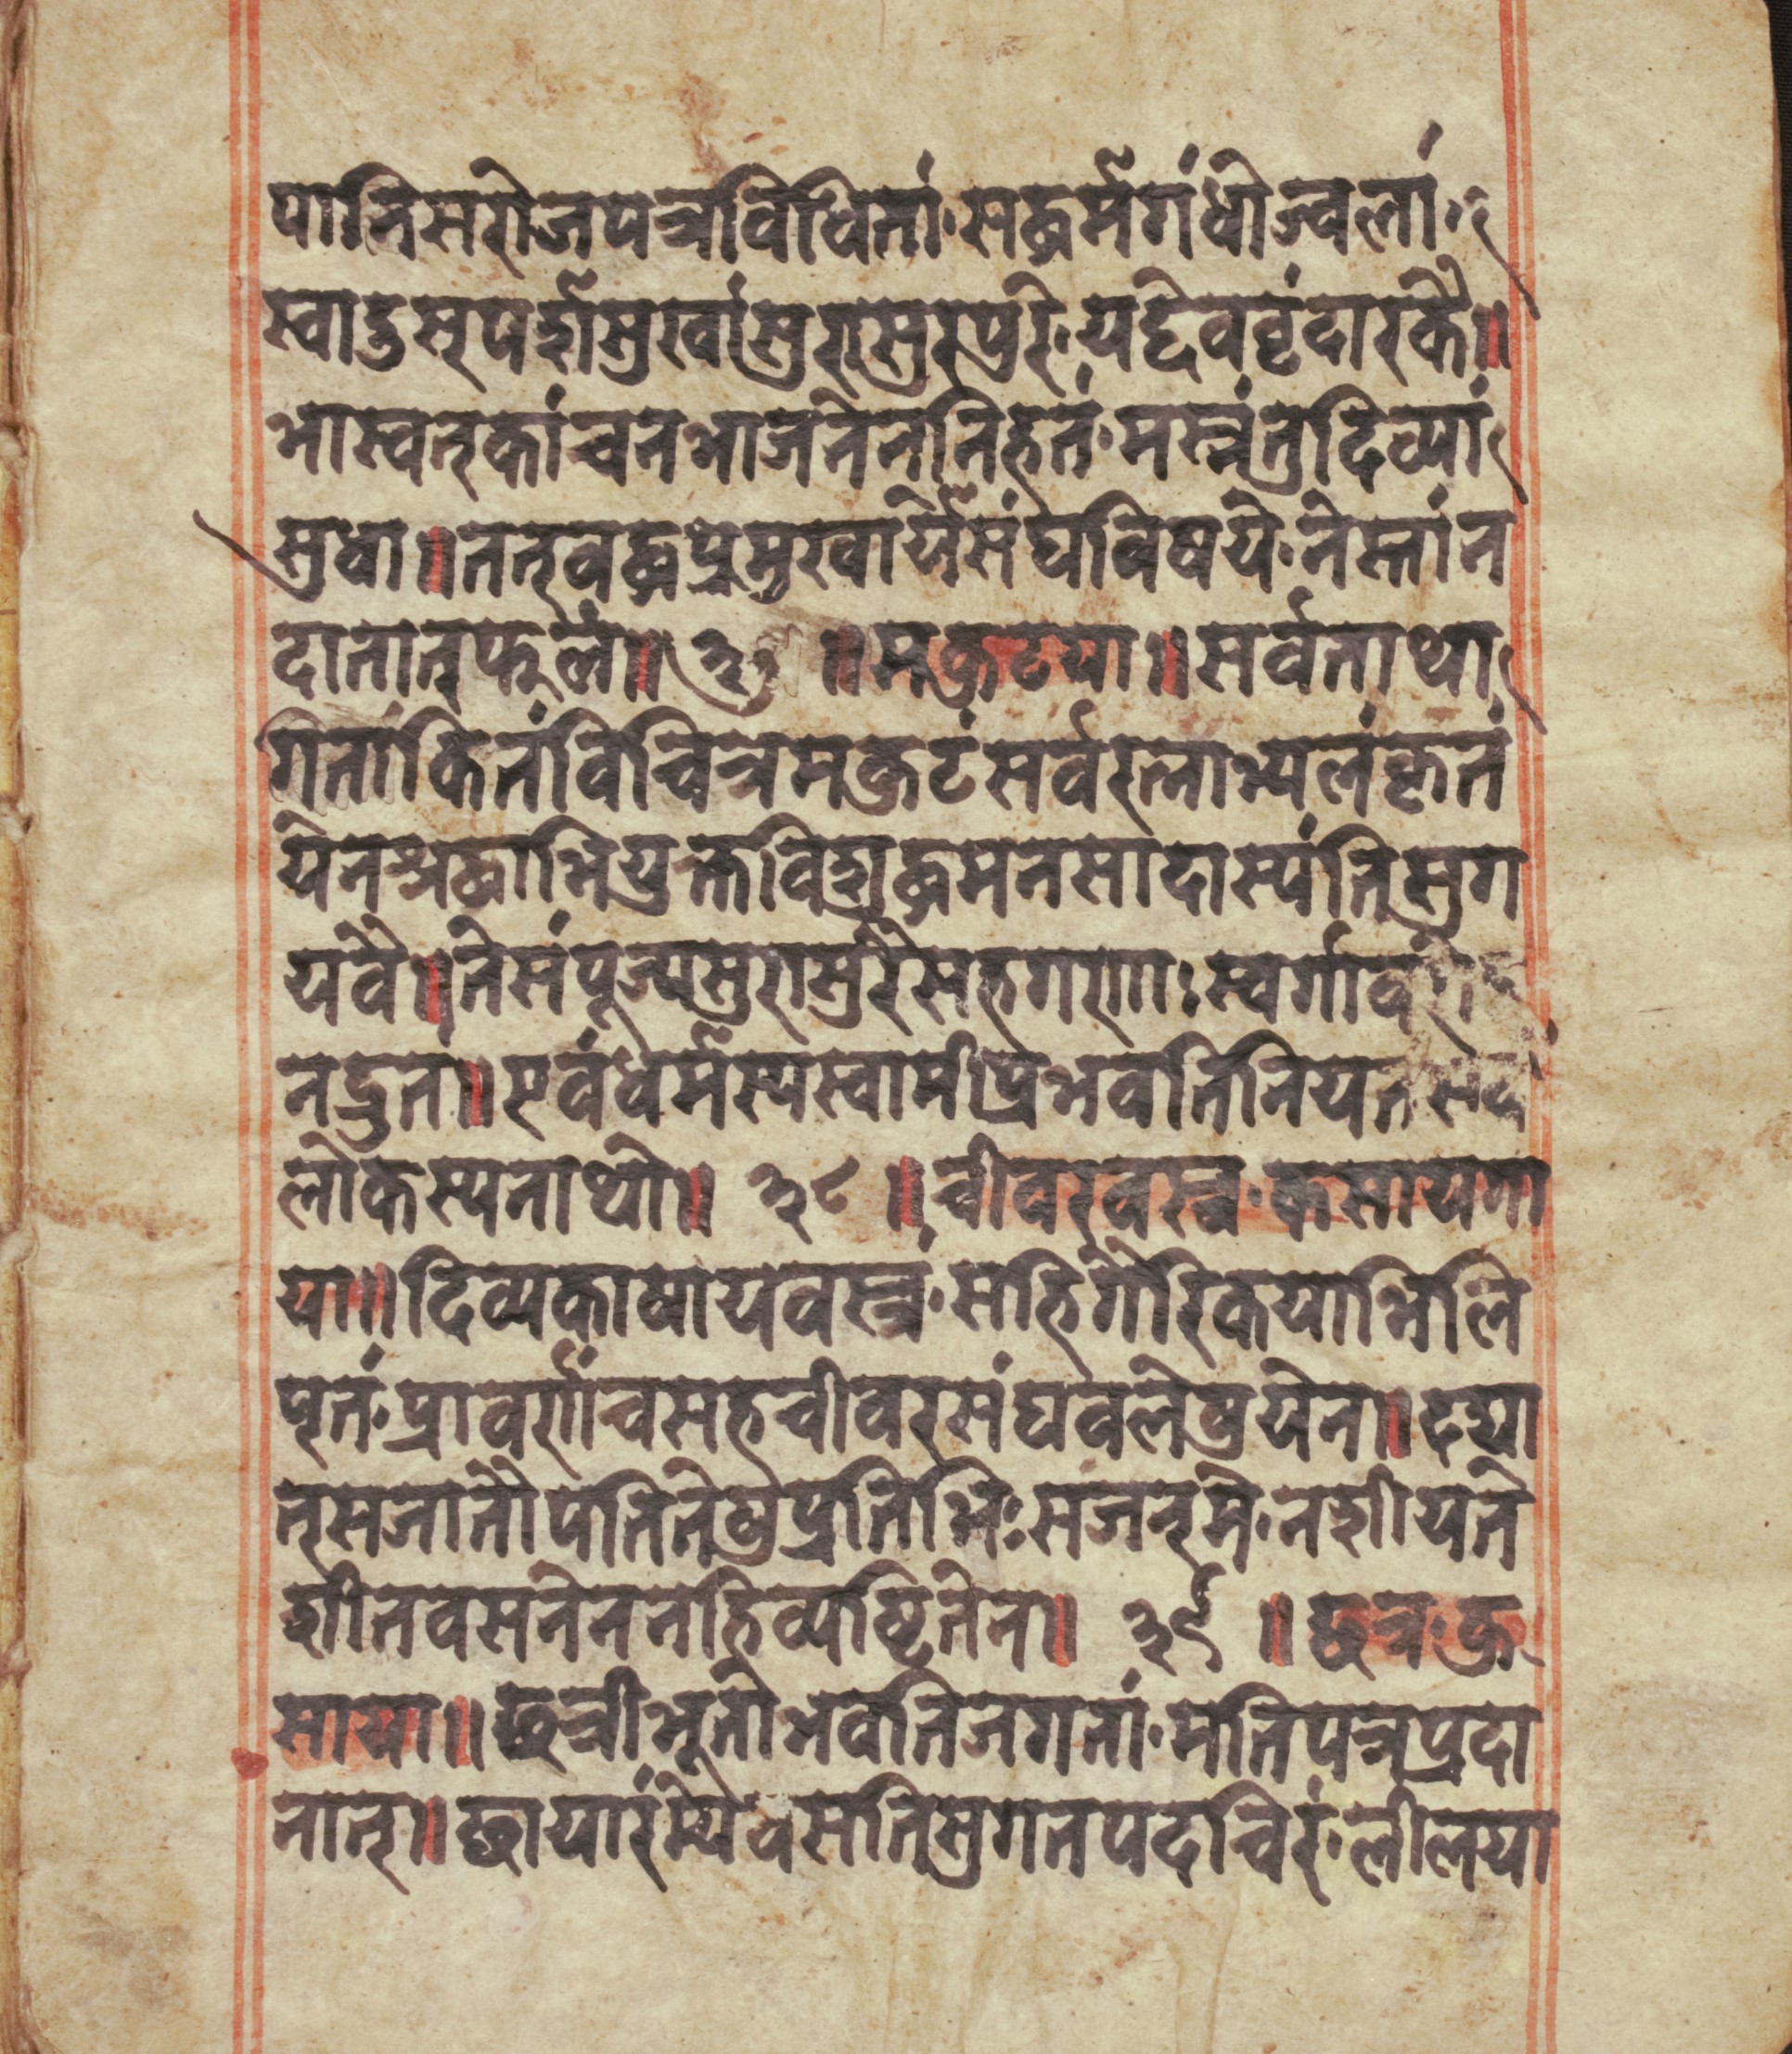 पानिसरोजपत्रविधिता॑ सद्धर्मगंधोज्वलां
स्वादुसूपर्शसुखां सुरासुरपुरि यद्देववृंदारकै॥
भास्वत्कांचनभाजनेननिहतं मस्त्रंतुदिव्यां
सुधा॥तत्वबद्धप्रमुखार्यसंघविषये तेस्तांन
दानात्फलं॥ ३७ ॥मकुटया॥सर्वताथा
गितांकितंविचित्रमकुटंसर्वरत्नाभ्यलंकृतं
येनश्रद्धाभियुक्तविशुद्धमनसादास्यंतिसुग
यवै॥तेसंपूज्यसुरासुरैसहगणाः स्वर्गाव
नद्रुत॥एवंधर्मस्यस्वामीप्रभवतिनियत
लोकस्यनाथो॥ ३८ ॥चीवरवस्त्र कसायता
या॥दिव्यकाषायवस्त्रं सहिगैरिकयाभिलि
पृतं प्रावर्णांचसहचीवरसंघवलेषुयेन॥दद्या
त्सजातौपतितेषुप्रतिभिः सजन्मे नशीयते
शीतवसनेननहिव्यष्टितेन॥ ३९ ॥छत्र कु
साया॥छत्रीभूतोभवतिजगतां मतिपत्रप्रदा
नात्॥छायारंम्येवसतिसुगतपदचिरं लीलया